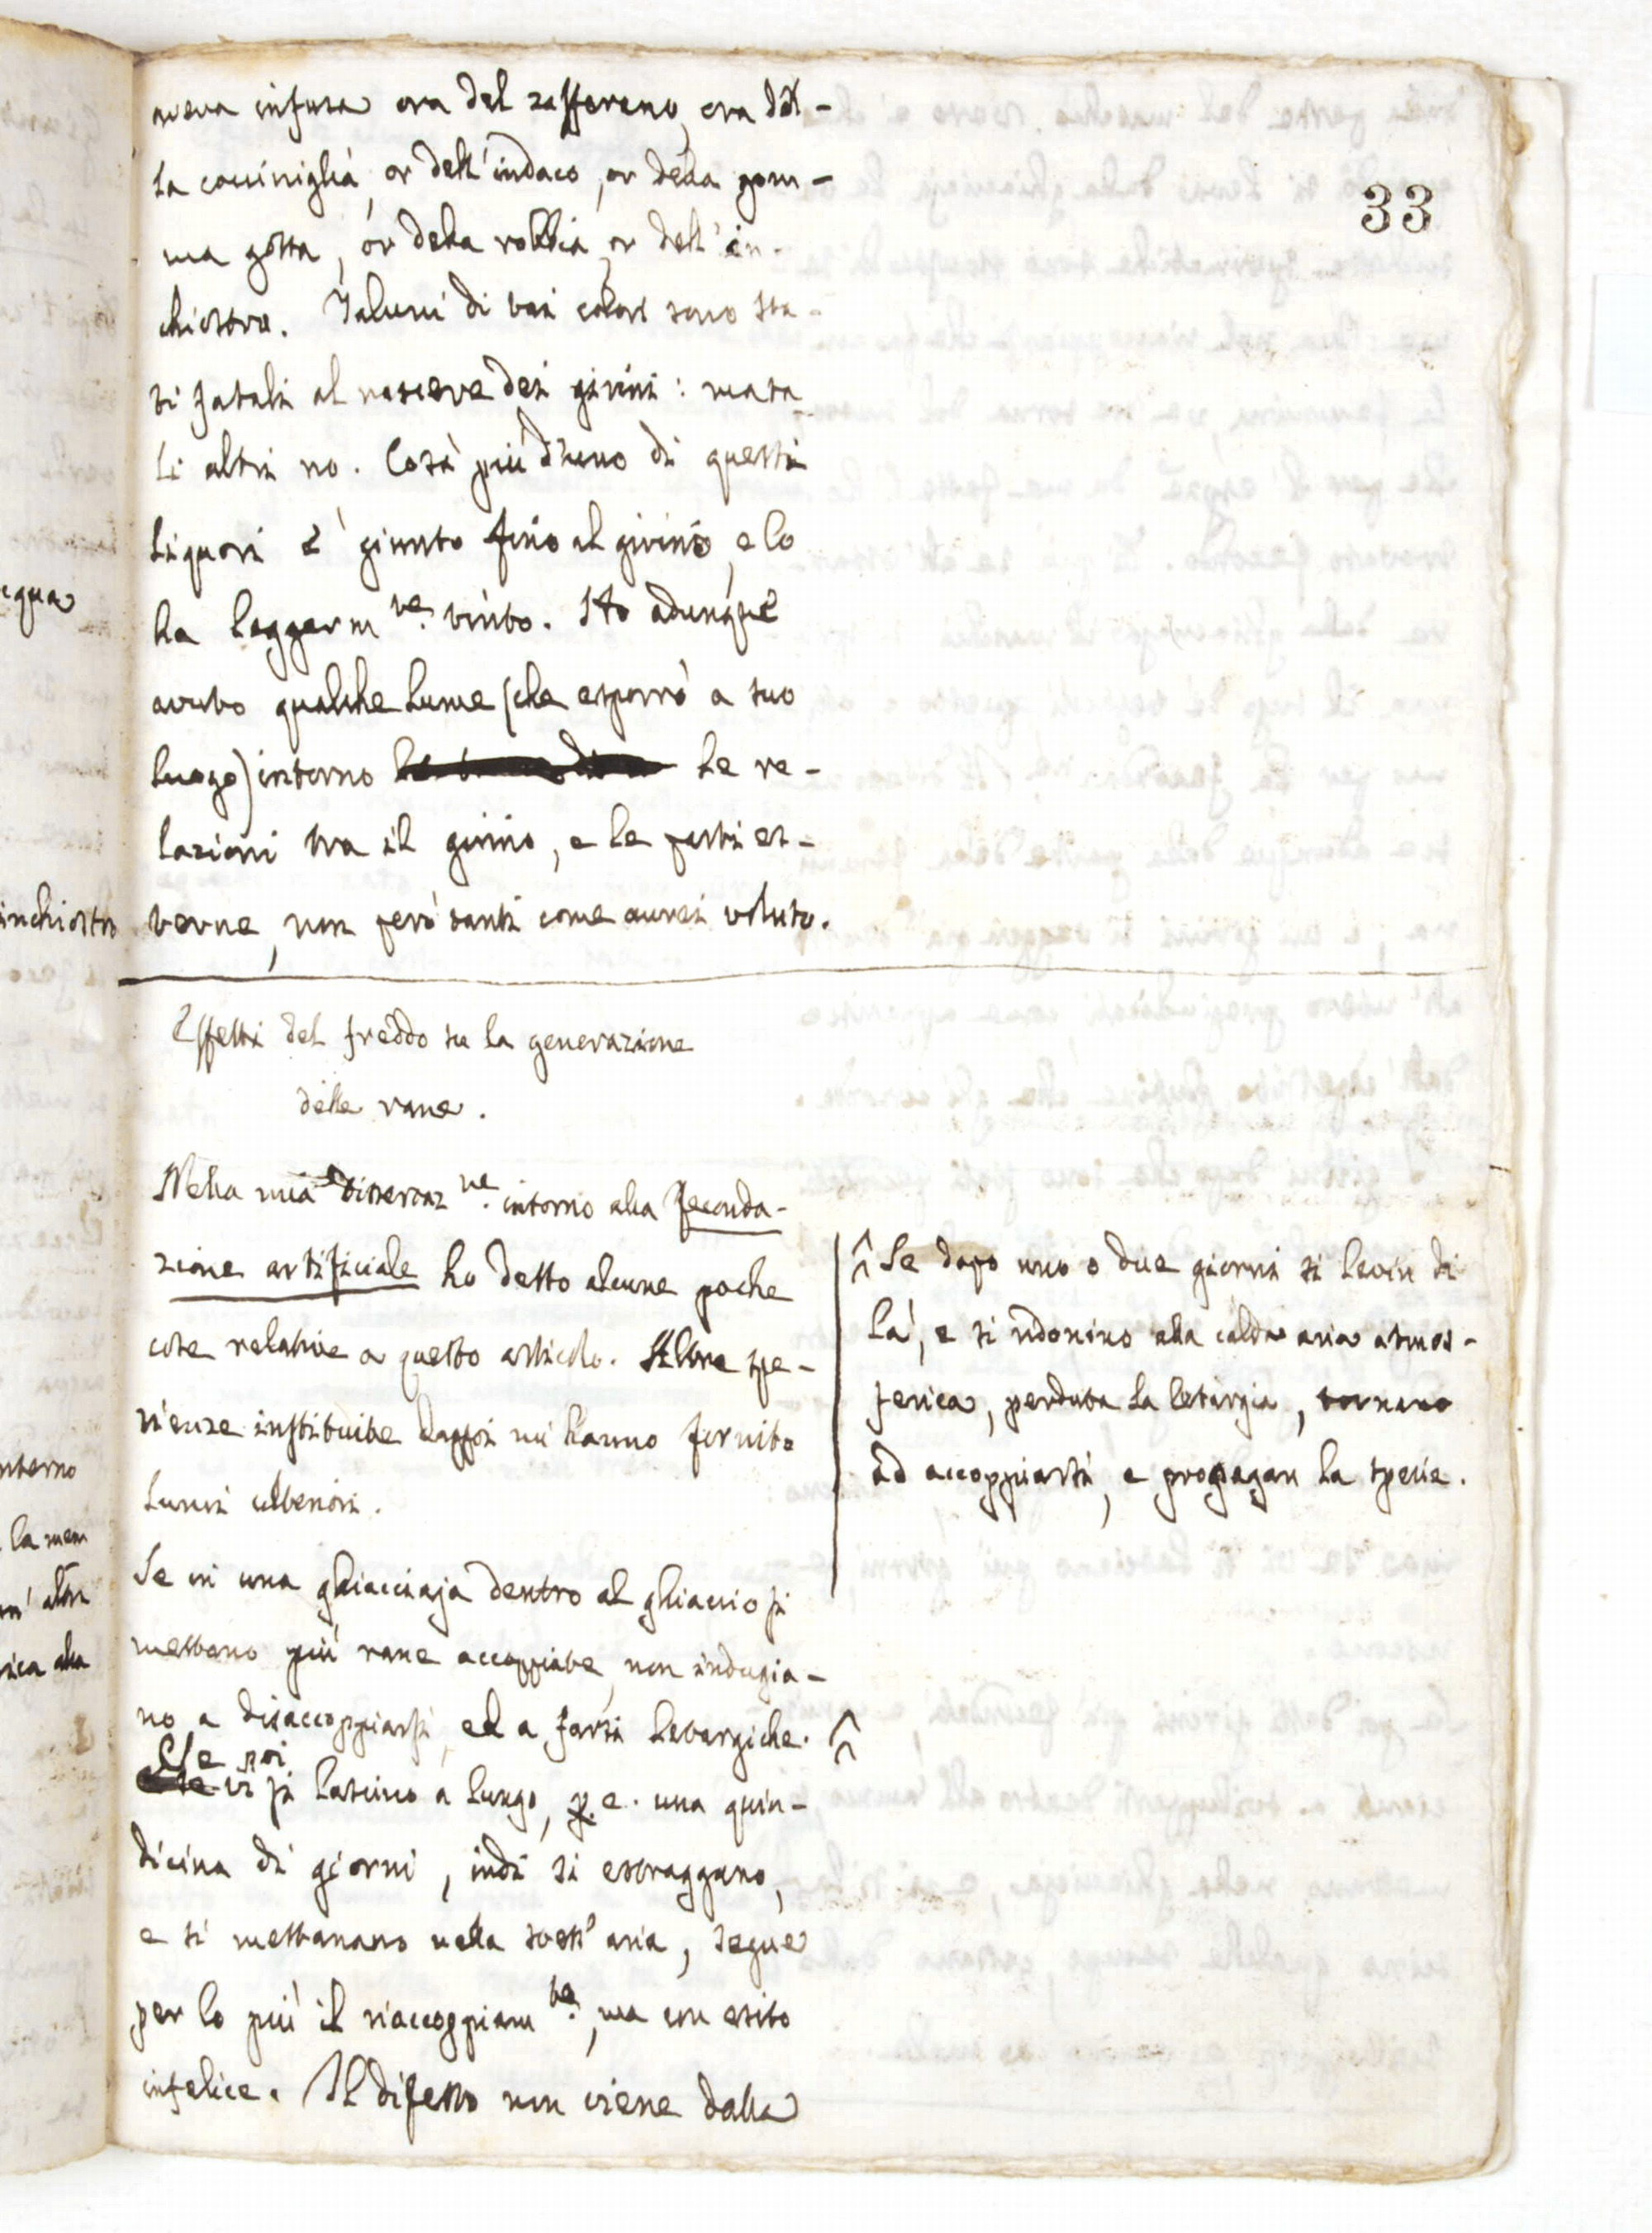 33
aveva infusa ora del zafferano, ora del-
la cocciniglia, or dell'indaco, or della gom-
ma gotta, or della robbia, or dell'in-
chiostro. Taluni di tai colori sono sta-
ti fatali al nascere dei girini: ma ta
li altri no. Così più d'uno di questi
liquori è giunto fino al girino, e lo
ha leggerm.te tinto. Ho adunque
avuto qualche lume (che esporrò a suo
luogo) intorno le re-
lazioni tra il girino, e le parti es-
terne, non però tanti come avrei voluto.
Effetti del freddo su la generazione
delle rane.
Nella mia Dissertaz.ne intorno alla feconda-
zione artificiale ho detto alcune poche
cose relative a questo articolo. Altre spe-
rienze instituite dappoi mi hanno fornito
lumi ulteriori.
Se in una ghiacciaja dentro al ghiaccio si
mettono più rane accoppiate, non indugia-
no a disaccoppiarsi, ed a farsi letargiche. ^
Se poi
vi si lascino a lungo, p.e. una quin-
dicina di giorni, indi si estraggano,
e si mettanano nella sud.a aria, segue
per lo più il riaccoppiam.to, ma con esito
infelice. Il difetto non viene dalla
^ Se dopo uno o due giorni si levin di
là, e si ridonino alla calda aria atmos-
ferica, perduta la letargia, tornano
ad accoppiarsi, e propagan la specie.
inchiostro
nterno
la mem
altri
alla